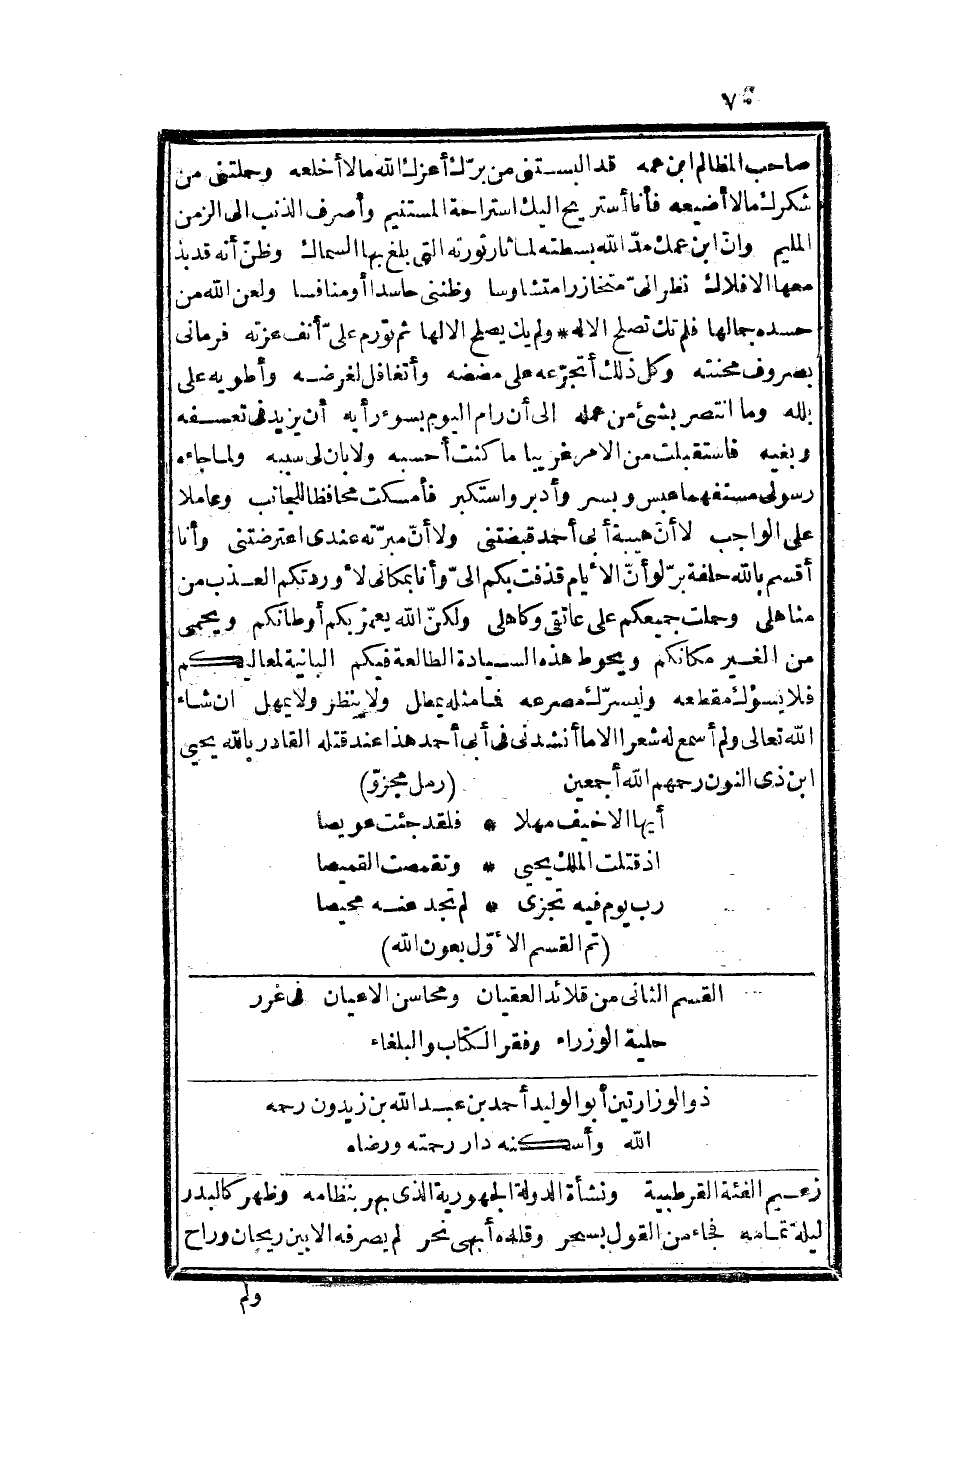 ٧٠
صاحب المظالم ابن عمه قد البستنى من برّك أعزك الله مالا أخلعه وحملتنى من
شكرك مالا أضيعه فأنا أستريح اليك استراحة المستنيم وأصرف الذنب الى الزمن
المليم وان ابن عمك مدّ الله بسطته لما ثار ثورته التى بلغ بها السماك وظنّ أنه قد بذ
معها الافلاك نظر الىّ متخازرا متشاوسا وظننى حاسدا أو منافسا ولعن الله من
حسده جمالها فلم تك تصلح الاله * ولم يك يصلح الالها ثم تورم علىّ أنف عزته فرمانى
بصروف محنته وكل ذلك أتجرّعه على مضضه وأتغافل لغرضه وأطويه على
بلله وما انتصر بشئ من عمله الى أن رام اليوم بسوء رأيه أن يزيد فى تعسفه
وبغيه فاستقبلت من الامر غريبا ما كنت أحسبه ولا بان لى سببه ولما جاءه
رسولى مستفهما عبس وبسر وأدبر واستكبر فأمسكت محافظا للجانب وعاملا
على الواجب لا أن هيبة أبى أحمد قبضتنى ولا أنّ مبرّته عندى اعترضتنى وأنا
أقسم بالله حلفة برّ لو أنّ الأيام قذفت بكم الىّ وأنا بمكانى لأوردتكم العذب من
مناهلى وحملت جميعكم على عاتقى وكاهلى ولكنّ الله يعمر بكم أوطانكم ويحمى
من الغير مكانكم ويحوط هذه السيادة الطالعة فيكم البانية لمعاليكم
فلا يسؤك مقطعه وليسرّك مصرعه فما مثله يمطل ولا ينظر ولا يمهل ان شاء
الله تعالى ولم أسمع له شعرا الا ما أنشدنى فى أبى أحمد هذا عند قتله القادر بالله يحيى
ابن ذى النون رحمهم الله أجمعين (رمل مجزوّ)
أيها الاخيف مهلا * فلقد جئت عويصا
اذ قتلت الملك يحيى * وتقمصت القميصا
رب يوم فيه تجزى * لم تجد عنه محيصا
(تم القسم الأوّل بعون الله)
القسم الثانى من قلائد العقيان ومحاسن الاعيان فى غرر
حلية الوزراء وفقر الكتاب والبلغاء
ذو الوزارتين أبو الوليد أحمد بن عبد الله بن زيدون رحمه
الله وأسكنه دار رحمته ورضاه
زعيم الفئة القرطبية ونشأة الدولة الجهورية الذى بهر بنظامه وظهر كالبدر
ليلة تمامه فجاء من القول بسحر وقلده أبهى نحر لم يصرفه الا بين ريحان وراح
ولم